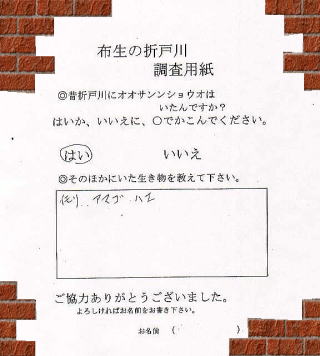 布生の折戸川
調査用紙
◎昔折戸川にオオサンンショウオは
いたんですか？
はいか、いいえに、〇でかこんでください。
はい いいえ
◎そのほかにいた生き物を教えて下さい。
アマゴ ハエ
ご協力ありがとうございました。
よろしければお名前をお書き下さい。
お名前 ( )